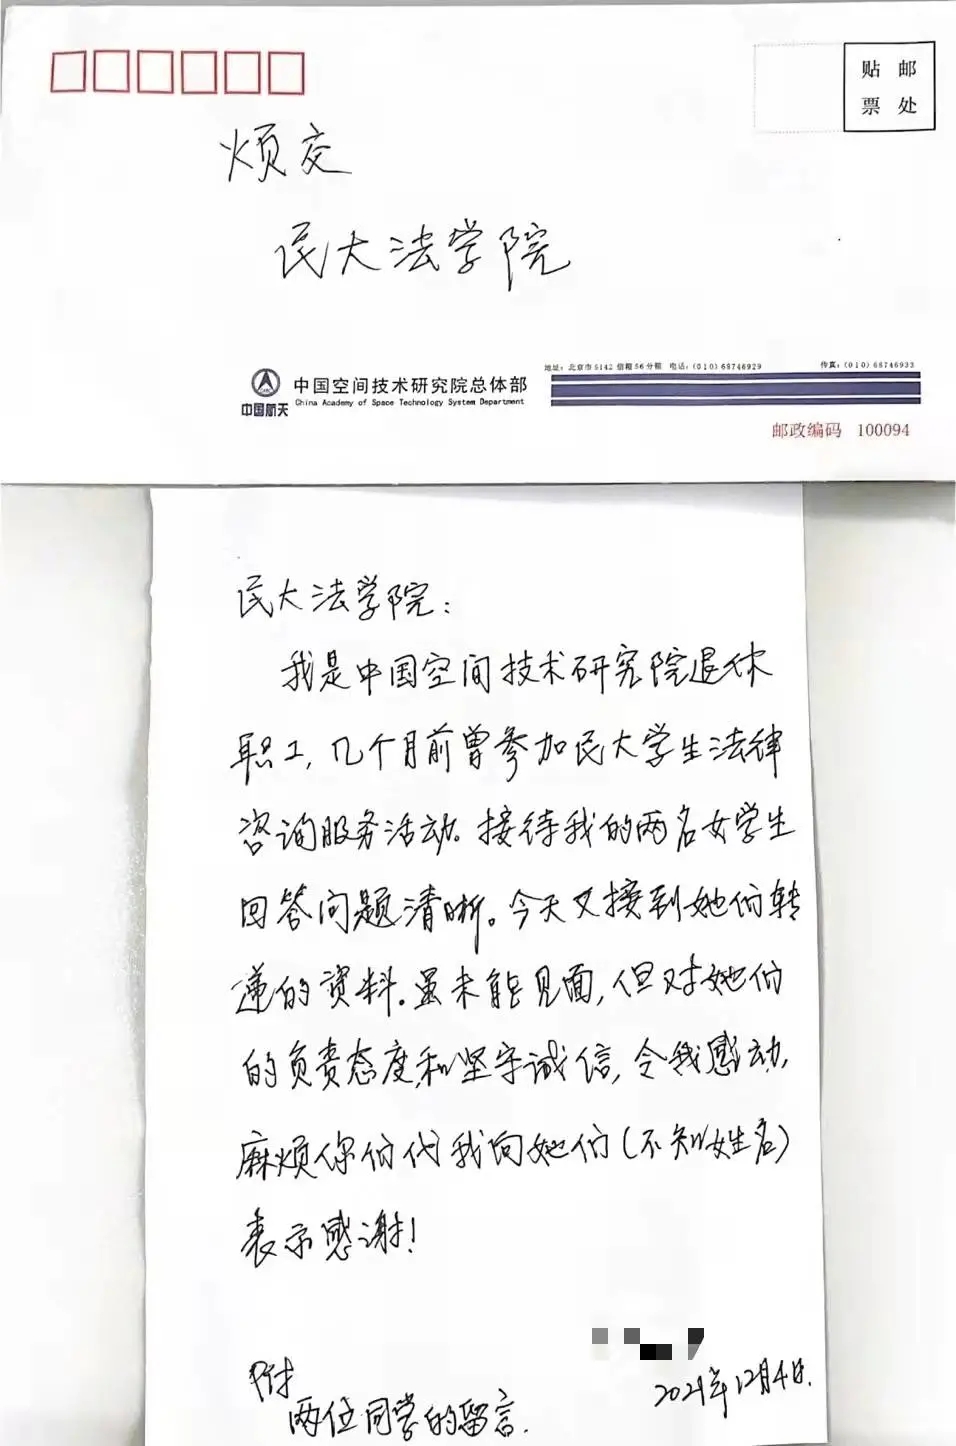 贴 邮
票 处
烦交
民大法学院
中国航天
中国空间技术研究院总体部
China Academy of Space Technology System Department
地址：北京市5142信箱56分箱 电话：(010)68746929 传真：(010)68746933
邮政编码 100094
民大法学院：
我是中国空间技术研究院退休
职工，几个月前曾参加民大学生法律
咨询服务活动。接待我的两名女学生
回答问题清晰。今天又接到她们转
递的资料。虽未能见面，但对她们
的负责态度和坚守诚信，令我感动，
麻烦你们代我向她们（不知姓名）
表示感谢！
2021年12月4日.
附
两位同学的留言.